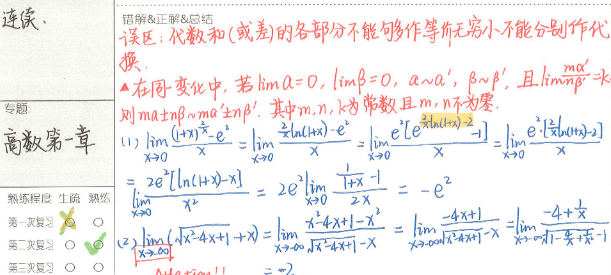 连续.
专题:
高数第一章
熟练程度 生疏 熟练
第一次复习
第二次复习
第三次复习
错解&正解&总结
误区:代数和(或差)的各部分不能够多作等价无穷小,不能分别作代
换.
▲在同一变化中,若limα=0,limβ=0,α~α′,β~β′,且lim mα′/nβ′=k
则mα±nβ~mα′±nβ′.其中m,n,k为常数且m,n不为零.
(1) lim_{x→0} ((1+x)^{2/x}-e²)/x = lim_{x→0} (2/x ln(1+x)-e²)/x = lim_{x→0} e²[e^{2/x ln(1+x)-2}-1]/x = lim_{x→0} e²·[2/x ln(1+x)-2]/x
= lim_{x→0} 2e²[ln(1+x)-x]/x² = 2e² lim_{x→0} (1/(1+x) -1)/2x = -e²
(2) lim_{x→-∞} (√(x²-4x+1)+x) = lim_{x→-∞} (x²-4x+1-x²)/(√(x²-4x+1)-x) = lim_{x→-∞} (-4x+1)/(√(x²-4x+1)-x) = lim_{x→-∞} (-4+1/x)/(-√(1-4/x+1/x²)-1)
Attention!! = 2